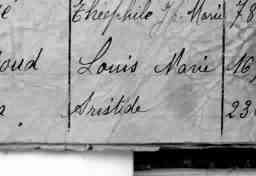 Théophile J. Marie 78
oud Louis Marie 16
a Aristide 23